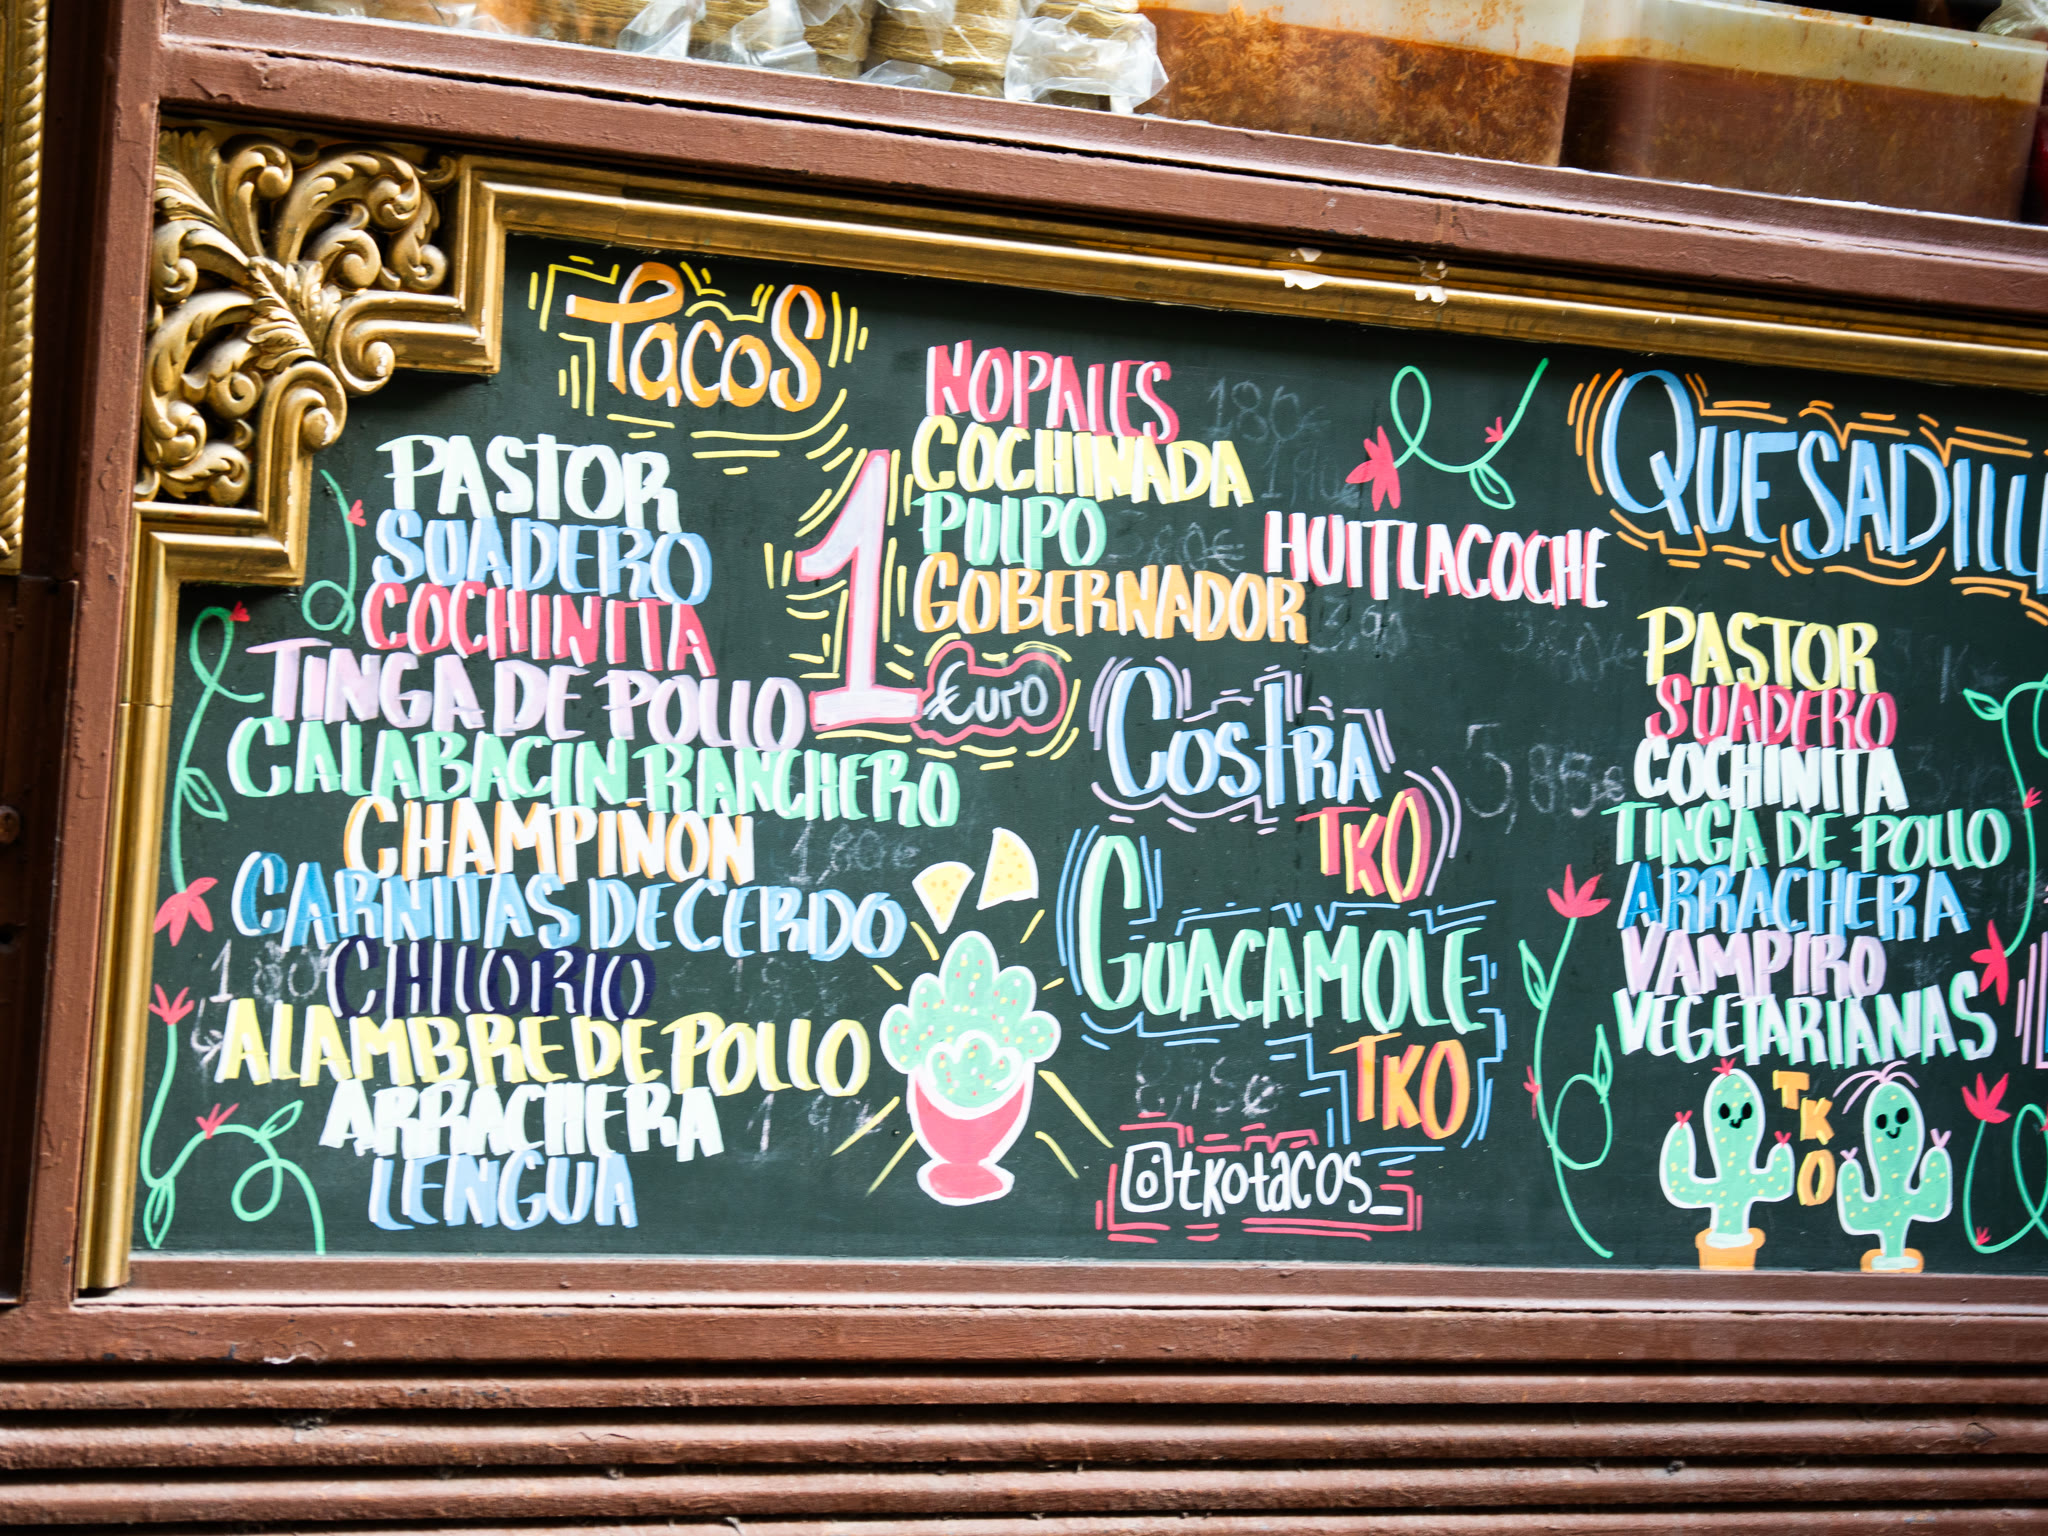 Tacos
PASTOR
SUADERO
COCHINITA
TINGA DE POLLO
CALABACIN RANCHERO
CHAMPIÑON
CARNITAS DE CERDO
CHILORIO
1,80€
ALAMBRE DE POLLO
ARRACHERA
LENGUA
1 €uro
NOPALES 1,80€
COCHINADA
PULPO
GOBERNADOR
HUITLACOCHE
COSTRA
TKO
5,85€
GUACAMOLE
TKO
tkotacos_
QUESADILL
PASTOR
SUADERO
COCHINITA
TINGA DE POLLO
ARRACHERA
VAMPIRO
VEGETARIANAS
TKO